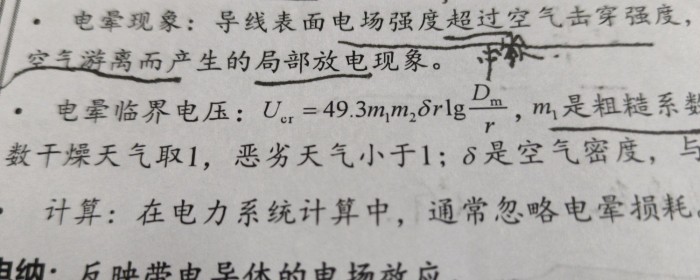 · 电晕现象：导线表面电场强度超过空气击穿强度，
空气游离而产生的局部放电现象。
· 电晕临界电压：U_cr = 49.3m₁m₂δr lg D_m/r，m₁是粗糙系数
数干燥天气取1，恶劣天气小于1；δ是空气密度，与
· 计算：在电力系统计算中，通常忽略电晕损耗。
电纳：反映带电导体的电场效应